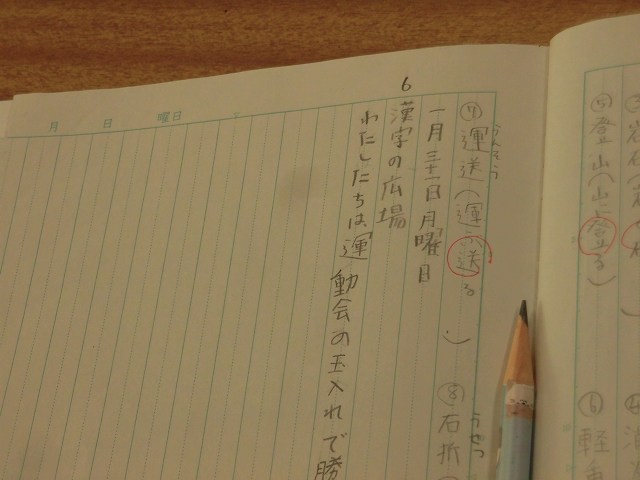 ⑤登山(山に登る)
⑥軽
うんそう
うせつ
⑦運送(運ぶ送る) ⑧右折(
一月三十一日月曜日
6
漢字の広場
わたしたちは、運動会の玉入れで勝
月 日 曜日